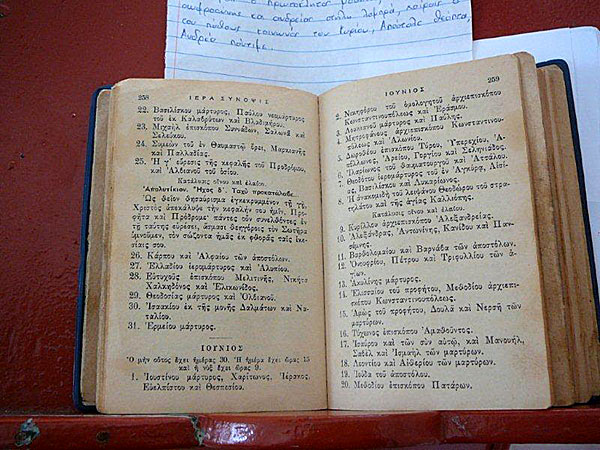 σωφροσύνης κα ανδρείας στήλη λαμπρά, καίρους ο
του πάθους κοινωνός του Κυρίου, Απόστολε θεόπτα,
Ανδρέα
258 ΙΕΡΑ ΣΥΝΟΨΙΣ
22. Βασιλίσκου μάρτυρος, Παύλου νεομάρτυρος
τοῦ ἐκ Καλαβρύτων καὶ Βλαδιμήρου.
23. Μιχαὴλ ἐπισκόπου Συννάδων, Σαλωνᾶ καὶ
Σελεύκου.
24. Συμεὼν τοῦ ἐν Θαυμαστῷ ὄρει, Μαρκιανῆς
καὶ Παλλαδίας.
25. Ἡ γ΄ εὕρεσις τῆς κεφαλῆς τοῦ Προδρόμου,
καὶ Ἀλδιανοῦ τοῦ ὁσίου.
Κατάλυσις οἴνου καὶ ἐλαίου.
Ἀπολυτίκιον. Ἦχος δ΄. Ταχὺ προκατάλαβε.
Ὡς θεῖον θησαύρισμα ἐγκεκρυμμένον τῇ γῇ,
Χριστὸς ἀπεκάλυψε τὴν κεφαλήν σου ἡμῖν, Προ-
φῆτα καὶ Πρόδρομε· πάντες οὖν συνελθόντες ἐν
τῇ ταύτης εὑρέσει, ᾄσμασι θεηγόροις τὸν Σωτῆρα
ὑμνοῦμεν, τὸν σώζοντα ἡμᾶς ἐκ φθορᾶς ταῖς ἱκε-
σίαις σου.
26. Κάρπου καὶ Ἀλφαίου τῶν ἀποστόλων.
27. Ἑλλαδίου ἱερομάρτυρος καὶ Ἀλυπίου.
28. Εὐτυχοῦς ἐπισκόπου Μελιτινῆς, Νικήτα
Χαλκηδόνος καὶ Ἑλικωνίδος.
29. Θεοδοσίας μάρτυρος καὶ Ὀλβιανοῦ.
30. Ἰσαακίου ἐκ τῆς μονῆς Δαλμάτων καὶ Να-
ταλίου.
31. Ἑρμείου μάρτυρος.
ΙΟΥΝΙΟΣ
Ὁ μὴν οὗτος ἔχει ἡμέρας 30. Ἡ ἡμέρα ἔχει ὥρας 15
καὶ ἡ νὺξ ἔχει ὥρας 9.
1. Ἰουστίνου μάρτυρος, Χαρίτωνος, Ἱέρακος,
Εὐελπίστου καὶ Θεσπεσίου.
ΙΟΥΝΙΟΣ 259
2. Νικηφόρου τοῦ ὁμολογητοῦ ἀρχιεπισκόπου
Κωνσταντινουπόλεως καὶ Ἐράσμου.
3. Λουκιανοῦ μάρτυρος καὶ Παύλης.
4. Μητροφάνους ἀρχιεπισκόπου Κωνσταντινου-
πόλεως καὶ Ἀλωνίου.
5. Δωροθέου ἐπισκόπου Τύρου, Ὑπερεχίου, Ἀ-
πόλλωνος, Ἀρείου, Γοργίου καὶ Σεληνιάδος.
6. Ἱλαρίωνος τοῦ δαλματουργοῦ καὶ Ἀττάλου.
7. Θεοδότου ἱερομάρτυρος τοῦ ἐν Ἀγκύρᾳ, Αἰσί-
ας, Βασιλίσκου καὶ Λυκαρίωνος.
8. Ἡ ἀνακομιδὴ τοῦ λειψάνου Θεοδώρου τοῦ στρα-
τηλάτου καὶ τῆς ἁγίας Καλλιόπης.
Κατάλυσις οἴνου καὶ ἐλαίου.
9. Κυρίλλου ἀρχιεπισκόπου Ἀλεξανδρείας.
10. Ἀλεξάνδρας, Ἀντωνίνης, Κανίδου καὶ Παν-
σέμνης.
11. Βαρθολομαίου καὶ Βαρνάβα τῶν ἀποστόλων.
12. Ὀνουφρίου, Πέτρου καὶ Τριφυλλίου τῶν ἁ-
γίων.
13. Ἀκυλίνης μάρτυρος.
14. Ἐλισσαίου τοῦ προφήτου, Μεθοδίου ἀρχιεπι-
σκόπου Κωνσταντινουπόλεως.
15. Ἀμὼς τοῦ προφήτου, Δουλᾶ καὶ Νερσῆ τῶν
μαρτύρων.
16. Τύχωνος ἐπισκόπου Ἀμαθοῦντος.
17. Ἰσαύρου καὶ τῶν σὺν αὐτῷ, καὶ Μανουήλ,
Σαβὲλ καὶ Ἰσμαὴλ τῶν μαρτύρων.
18. Λεοντίου καὶ Αἰθερίου τῶν μαρτύρων.
19. Ἰούδα τοῦ ἀποστόλου.
20. Μεθοδίου ἐπισκόπου Πατάρων,